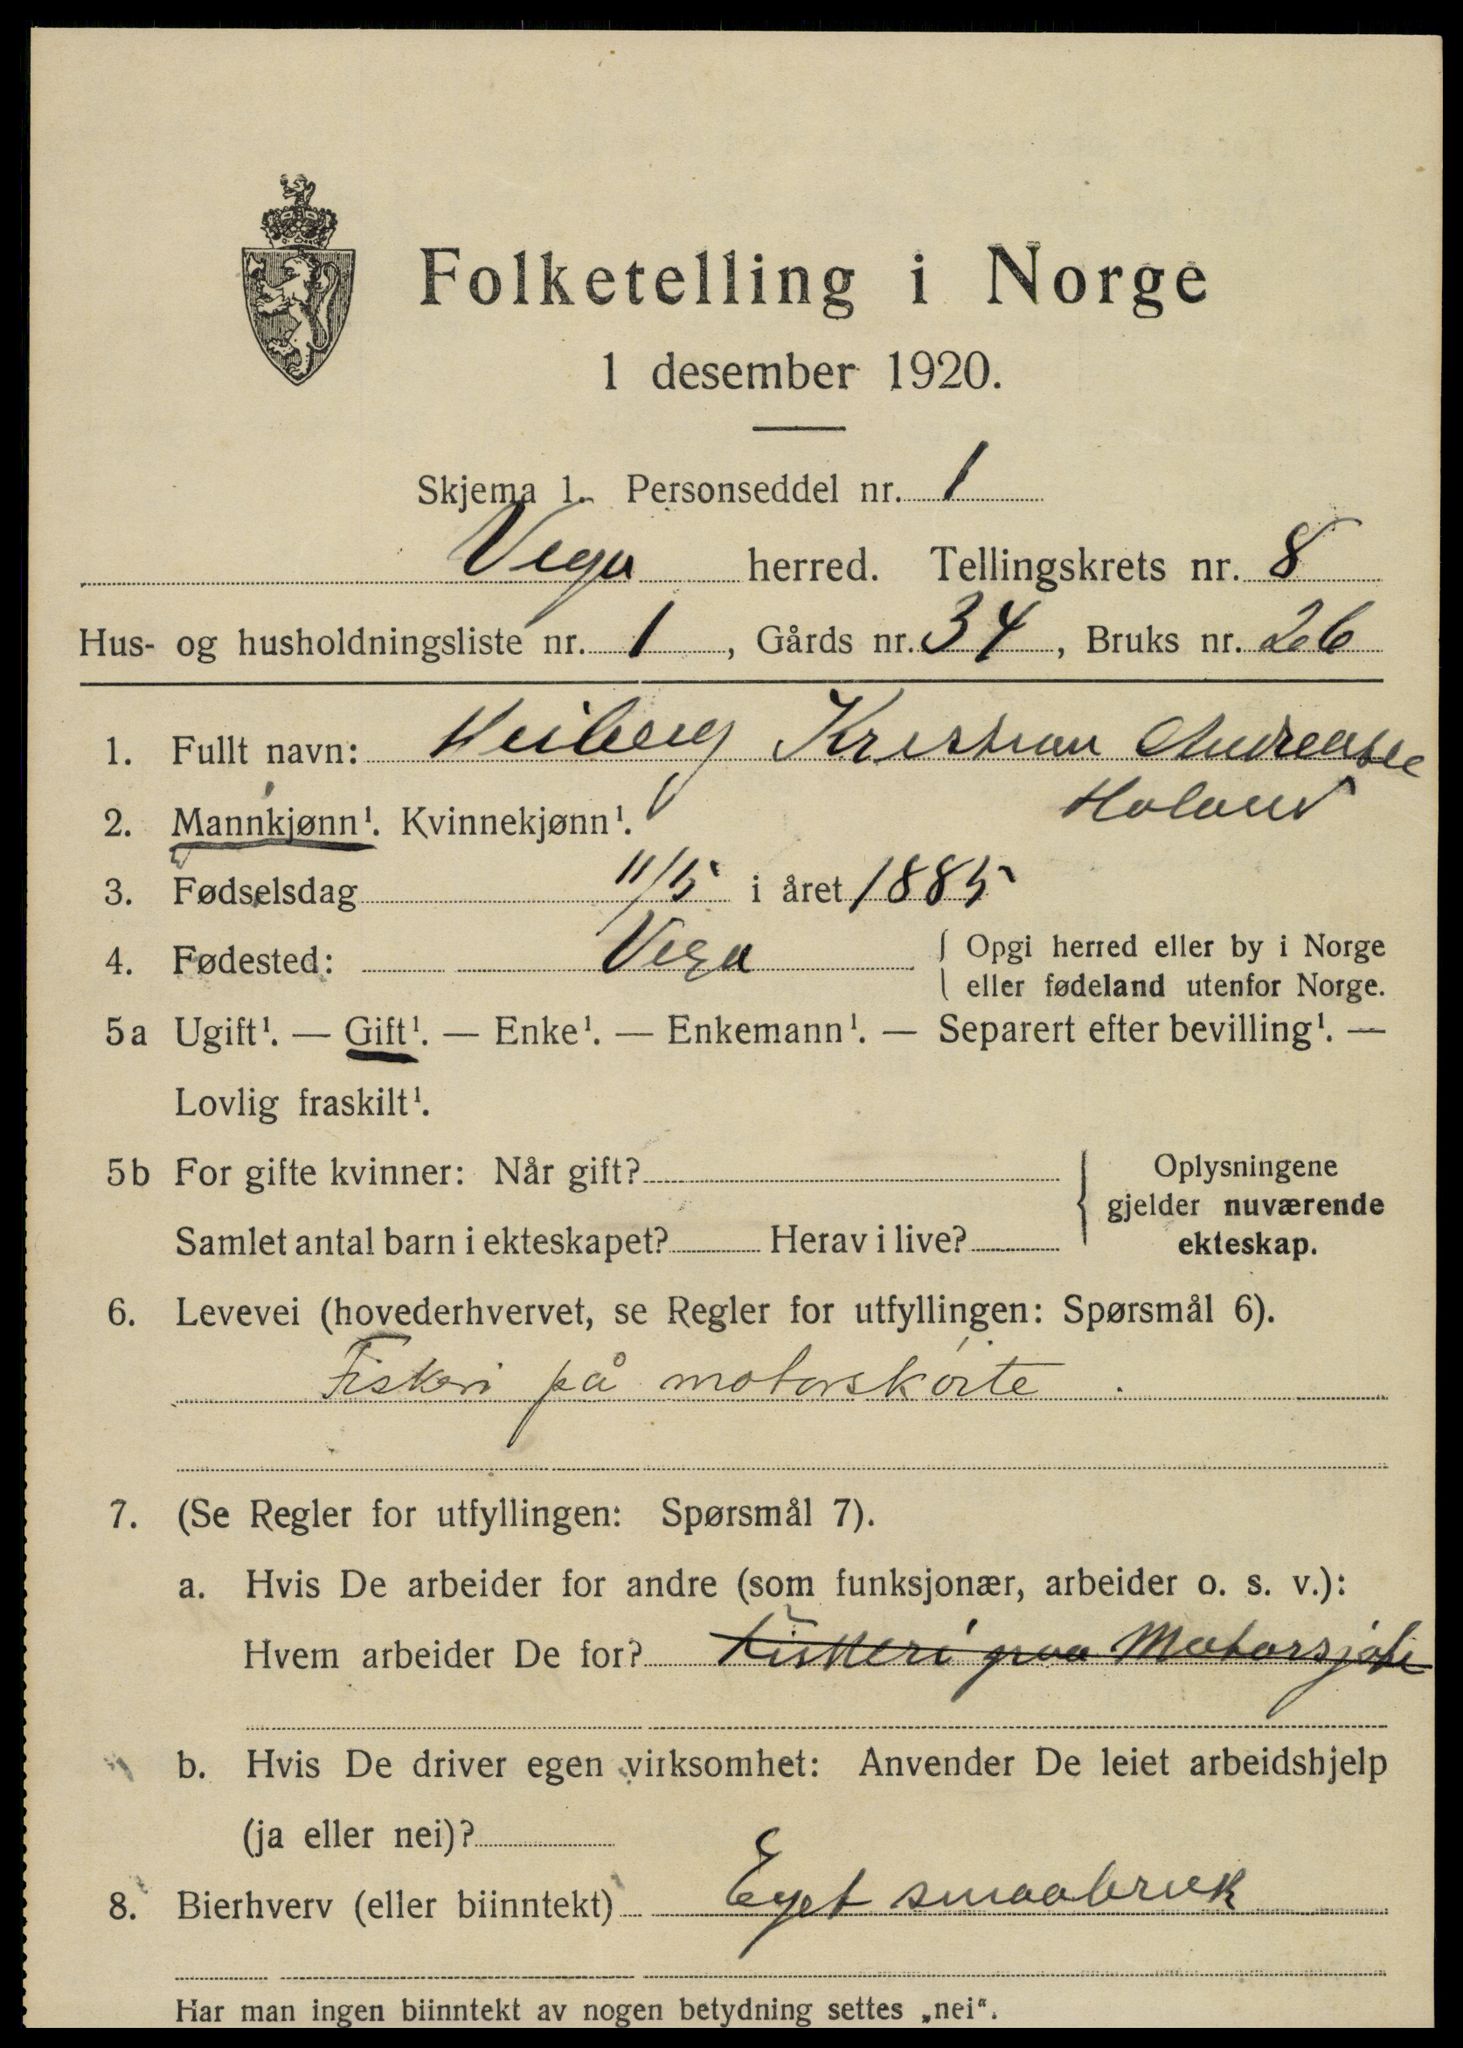 Folketelling i Norge
1 desember 1920.
Skjema 1. Personseddel nr. 1
Vega herred. Tellingskrets nr. 8
Hus- og husholdningsliste nr. 1, Gårds nr. 34, Bruks nr. 26
1. Fullt navn: Heiberg Kristian Andreas
2. Mannkjønn¹. Kvinnekjønn¹.
3. Fødselsdag 11/5 i året 1885
4. Fødested: Vega { Opgi herred eller by i Norge
eller fødeland utenfor Norge.
5a Ugift¹. — Gift¹. — Enke¹. — Enkemann¹. — Separert efter bevilling¹. —
Lovlig fraskilt¹.
5b For gifte kvinner: Når gift? { Oplysningene
gjelder nuværende
Samlet antal barn i ekteskapet? Herav i live? ekteskap.
6. Levevei (hovederhvervet, se Regler for utfyllingen: Spørsmål 6).
Fiskeri på motorskøite.
7. (Se Regler for utfyllingen: Spørsmål 7).
a. Hvis De arbeider for andre (som funksjonær, arbeider o. s. v.):
Hvem arbeider De for? Fiskeri paa
b. Hvis De driver egen virksomhet: Anvender De leiet arbeidshjelp
(ja eller nei)?
8. Bierhverv (eller biinntekt) Eget smaabruk
Har man ingen biinntekt av nogen betydning settes „nei".